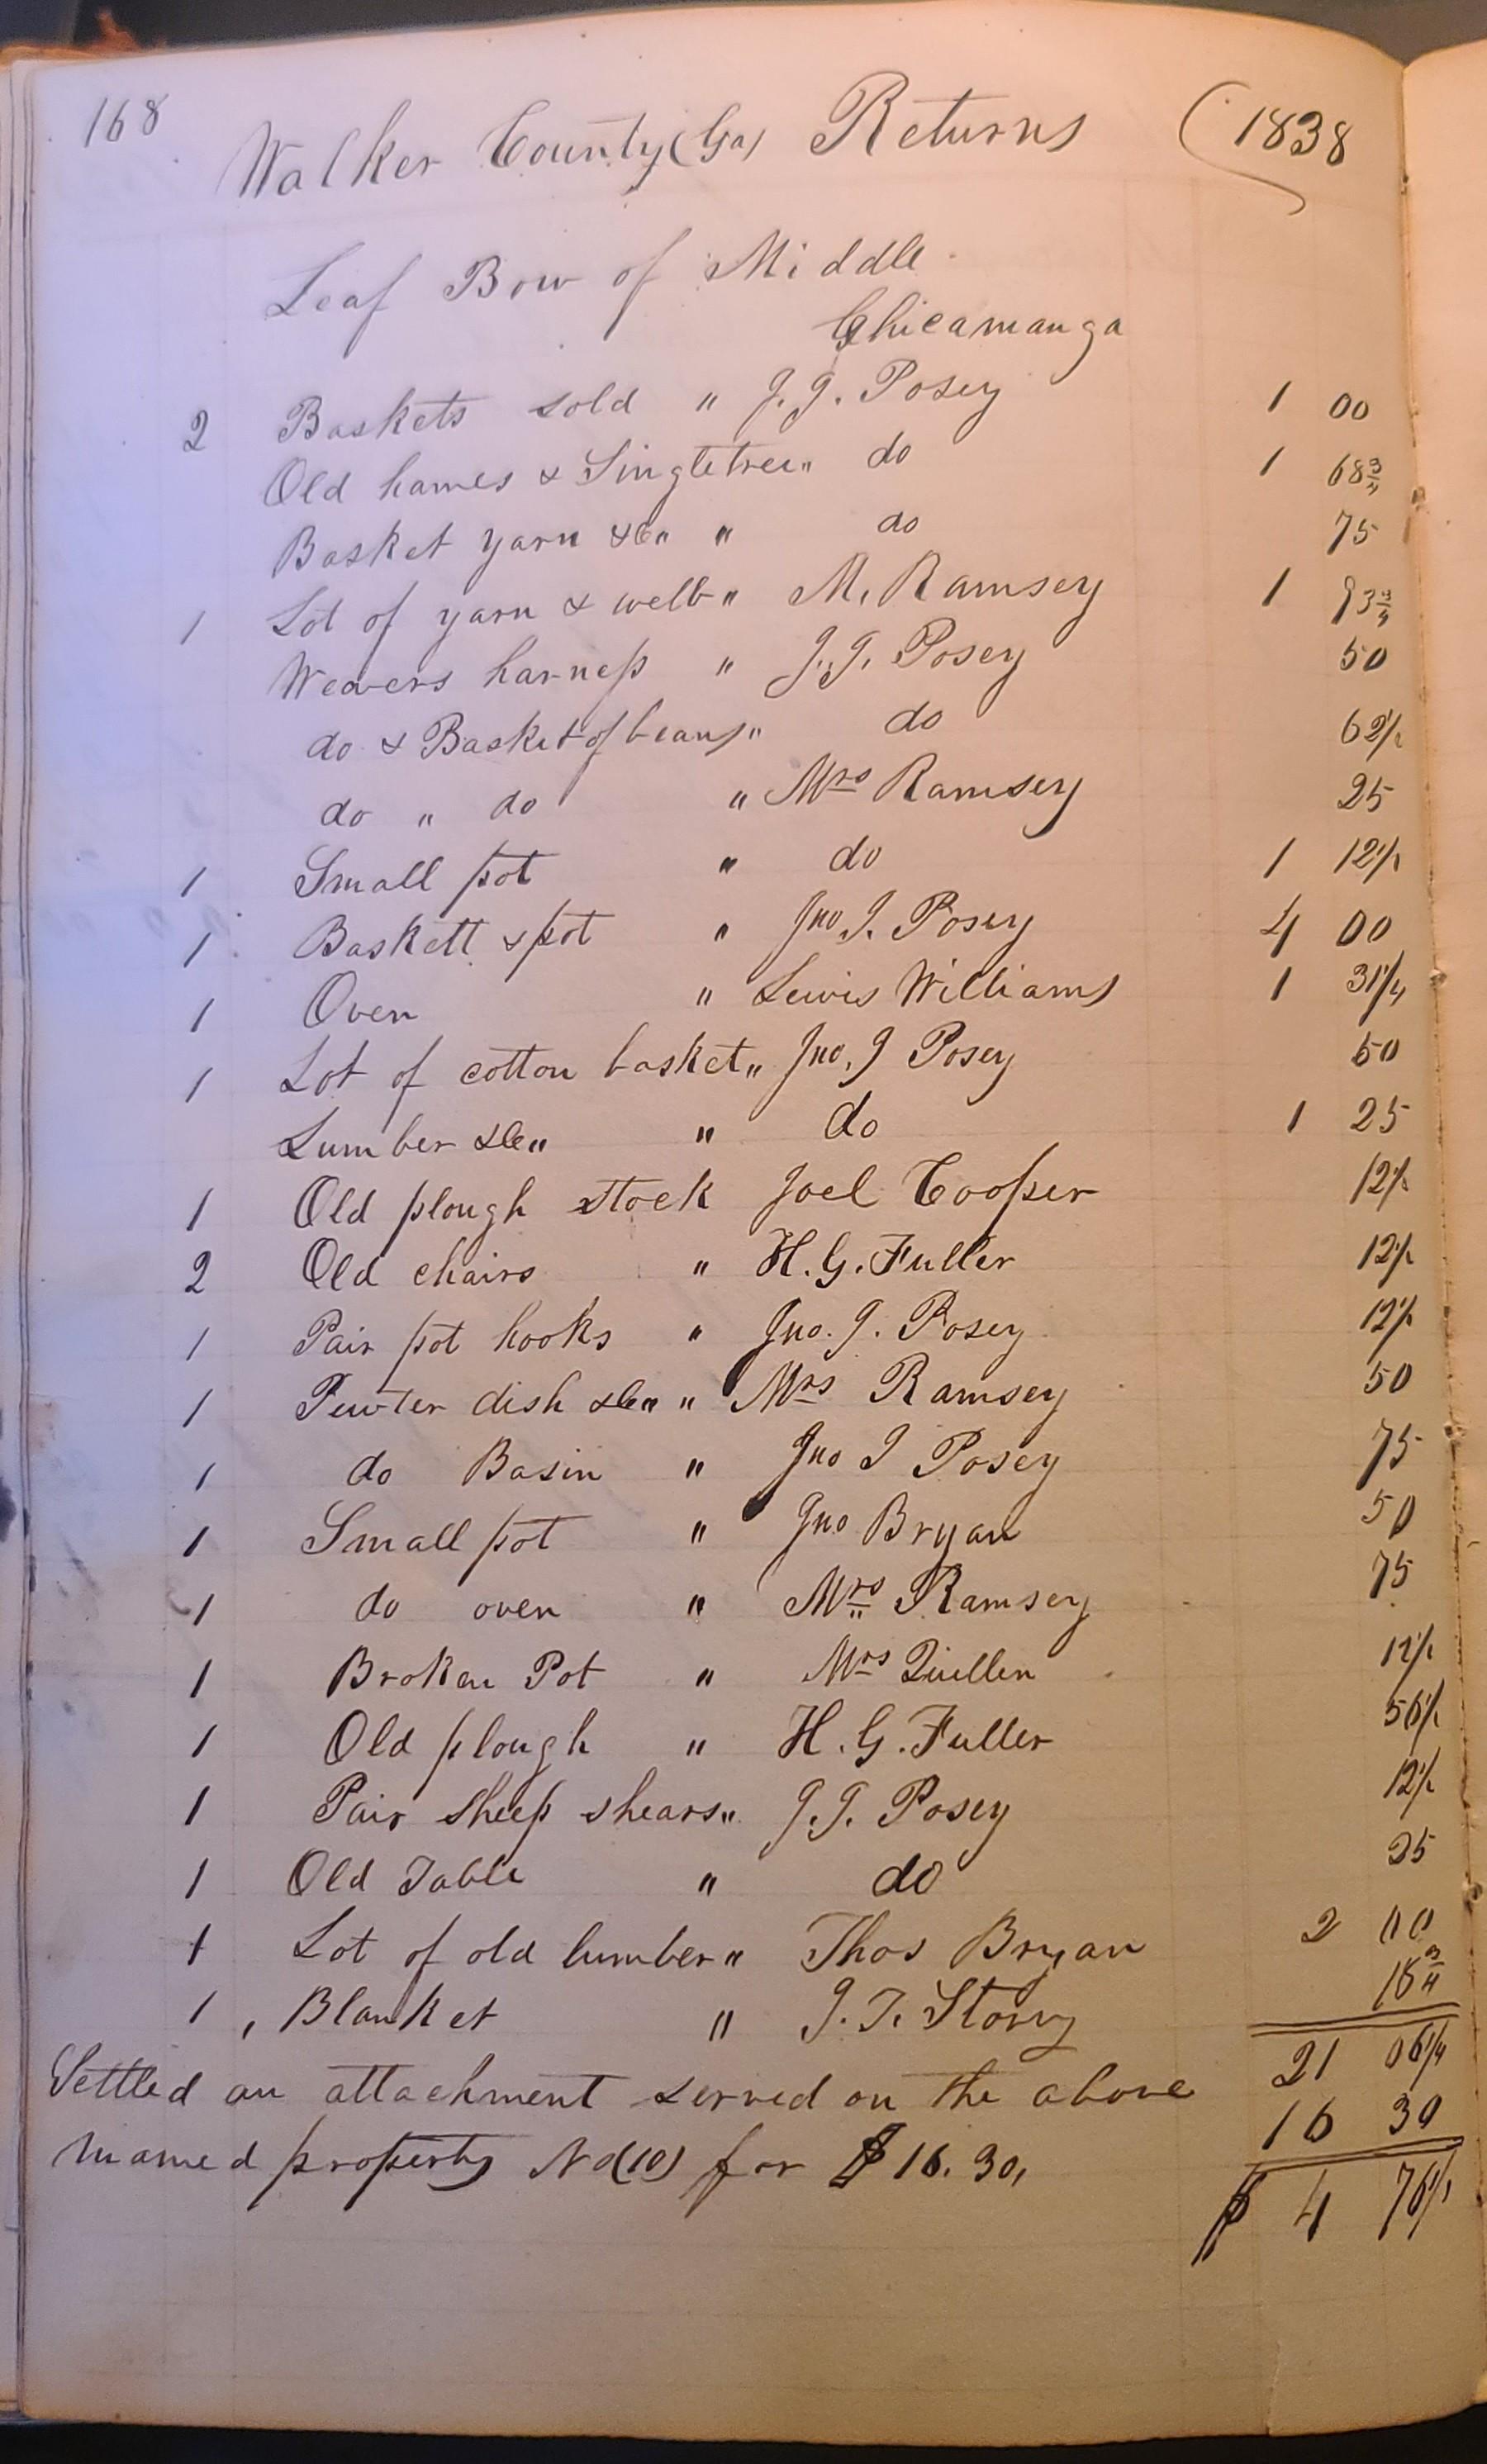 168 Walker County (Ga) Returns (1838
Leaf Bow of Middle
Chicamauga
2 Baskets sold " J. J. Posey 1 00
Old hames & Singletree " do 1 68 3/4
Basket yarn &c " " do 75
1 Lot of yarn & webb " M. Ramsey 1 93 3/4
Weavers harness " J. J. Posey 50
do & Basket of beans " do 62 1/2
do " do " Mrs Ramsey 25
1 Small pot " do 1 12 1/2
1 Baskett & pot " Jno J. Posey 4 00
1 Oven " Lewis Williams 1 31 1/4
1 Lot of cotton basket " Jno. J Posey 50
Lumber &c " " do 1 25
1 Old plough stock Joel Cooper 12 1/2
2 Old chairs " H. G. Fuller 12 1/2
1 Pair pot hooks " Jno. J. Posey 12 1/2
1 Pewter dish &c " " Mrs Ramsey 50
1 do Basin " Jno J Posey 75
1 Small pot " Jno Bryan 50
1 do oven " Mrs Ramsey 75
1 Broken Pot " Mrs 12 1/2
1 Old plough " H. G. Fuller 56 1/4
1 Pair sheep shears " J. J. Posey 12 1/2
1 Old Table " do 25
1 Lot of old lumber " Thos Bryan 2 00
1 Blanket " J. T. Story 18 3/4
21 06 1/4
Settled an attachment served on the above
16 30
named property No (10) for $16.30,
$ 4 76 1/4